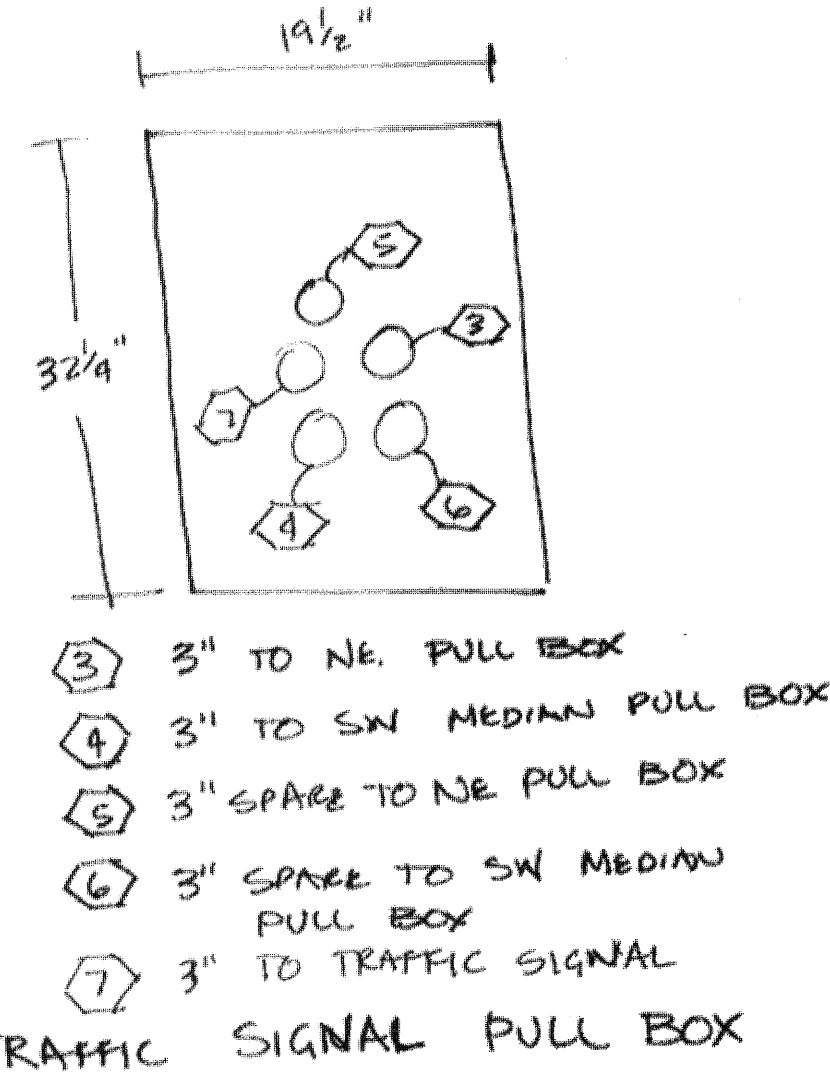 19 1/2"
5
3
32 1/4"
7
4
6
3 3" TO NE. PULL BOX
4 3" TO SW MEDIAN PULL BOX
5 3" SPARE TO NE PULL BOX
6 3" SPARE TO SW MEDIAN
PULL BOX
7 3" TO TRAFFIC SIGNAL
RAFFIC SIGNAL PULL BOX